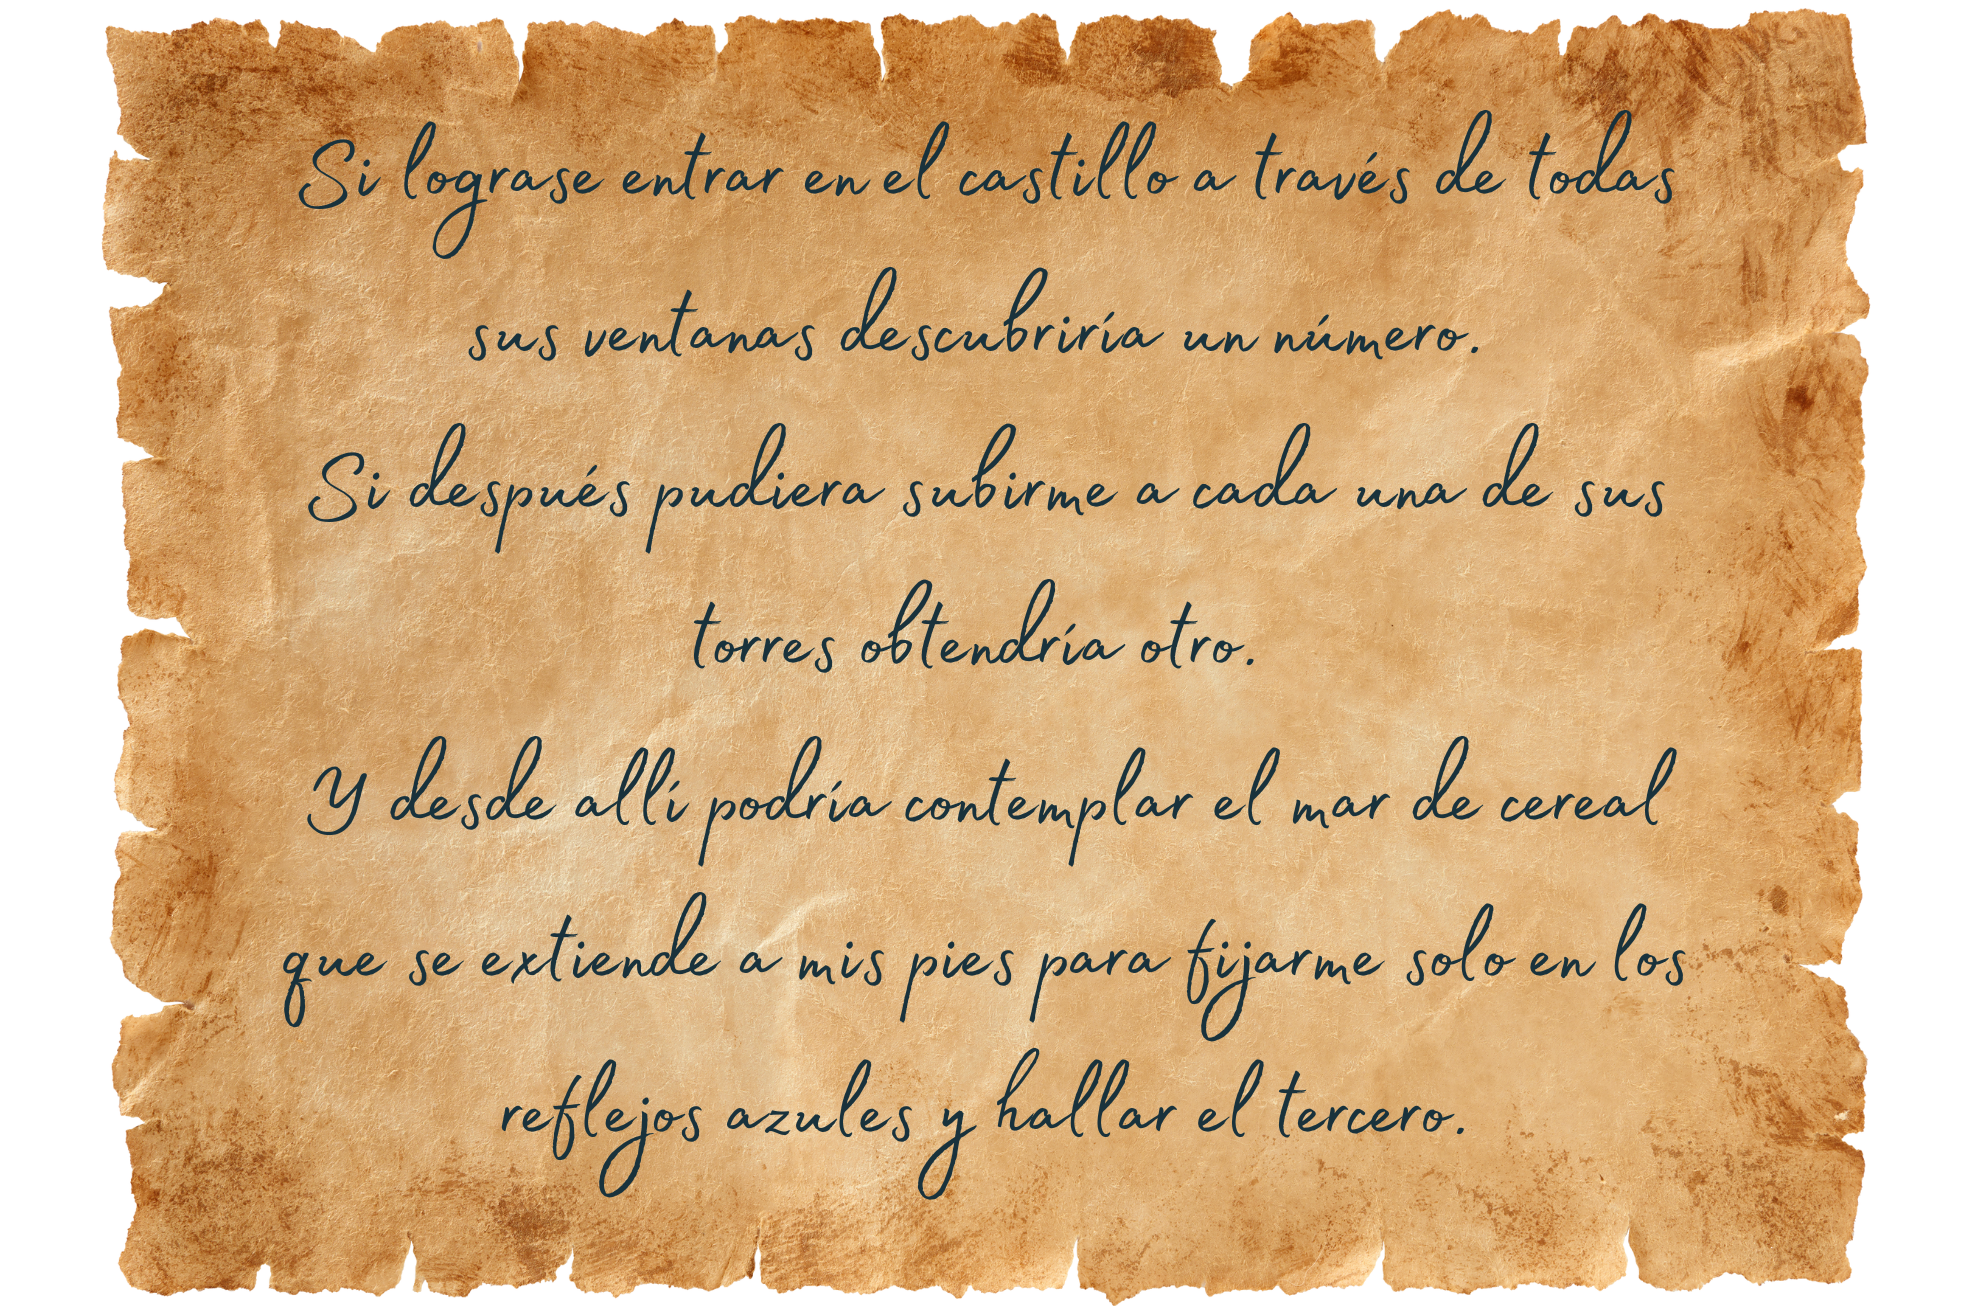 Si lograse entrar en el castillo a través de todas
sus ventanas descubriría un número.
Si después pudiera subirme a cada una de sus
torres obtendría otro.
Y desde allí podría contemplar el mar de cereal
que se extiende a mis pies para fijarme solo en los
reflejos azules y hallar el tercero.